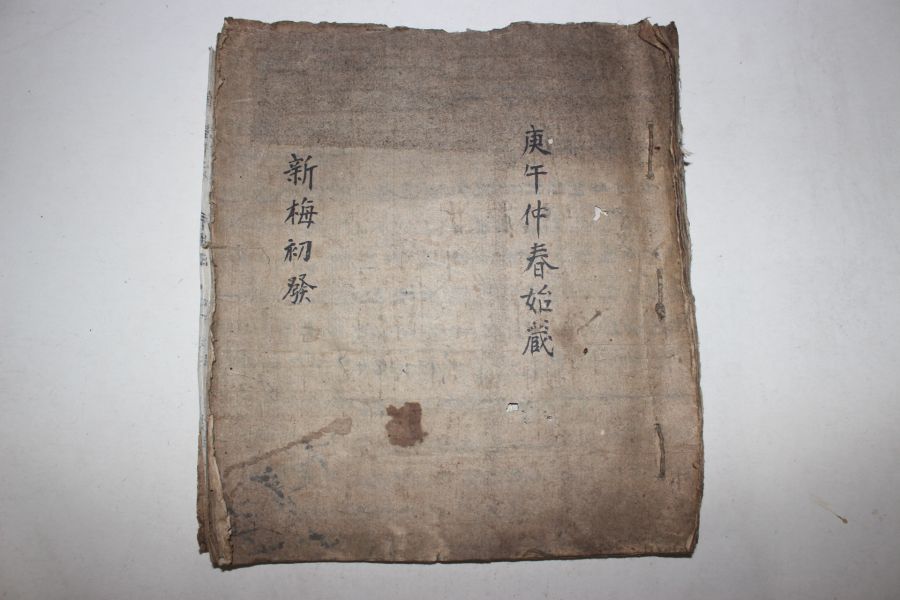 庚午仲春始蕆
新梅初發